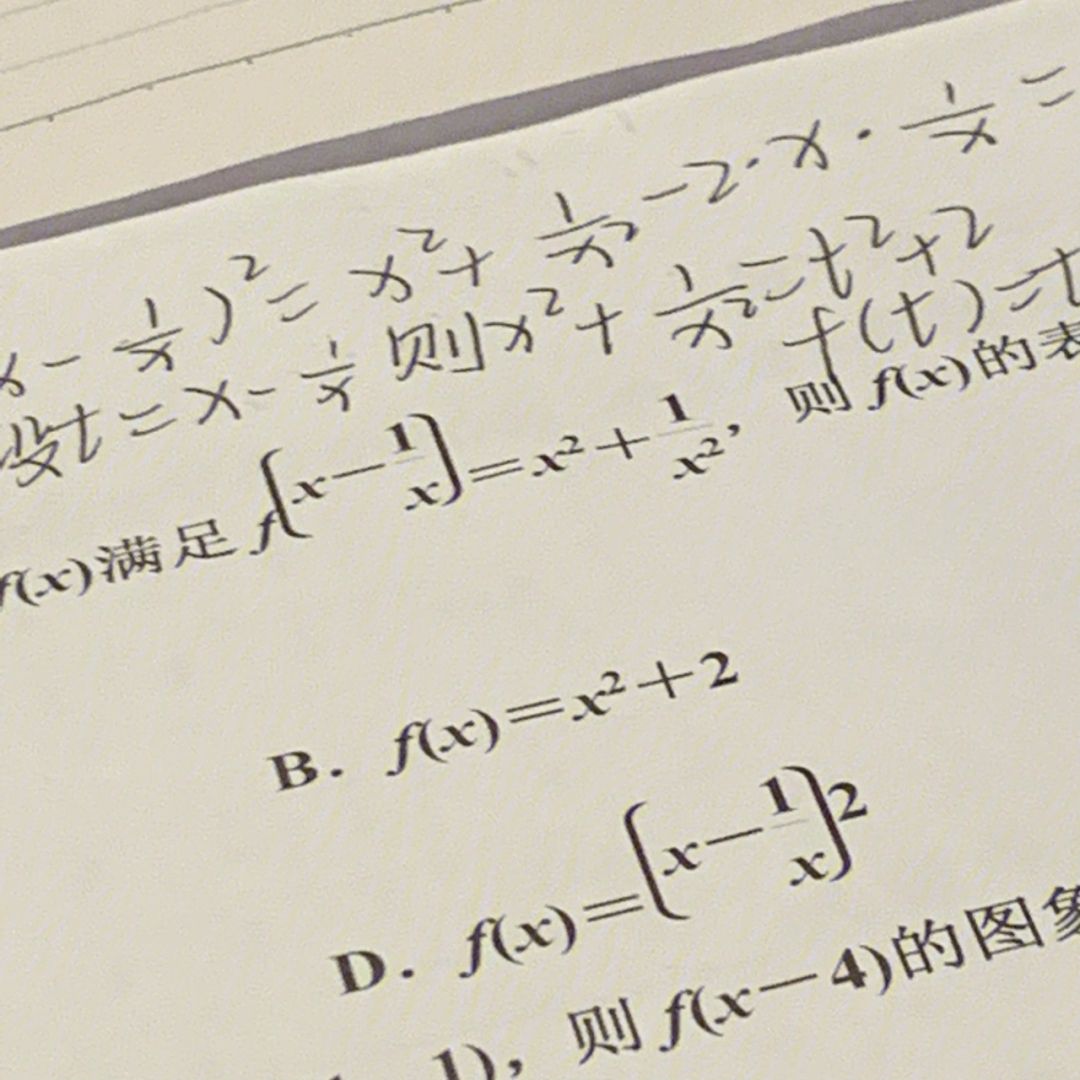 x - 1/x)² = x² + 1/x² - 2·x·1/x =
设t = x - 1/x 则x² + 1/x² = t² + 2
f(t) = t
f(x)满足 f(x-1/x)=x²+1/x²,则 f(x)的表
B. f(x)=x²+2
D. f(x)=(x-1/x)²
1),则 f(x-4)的图象